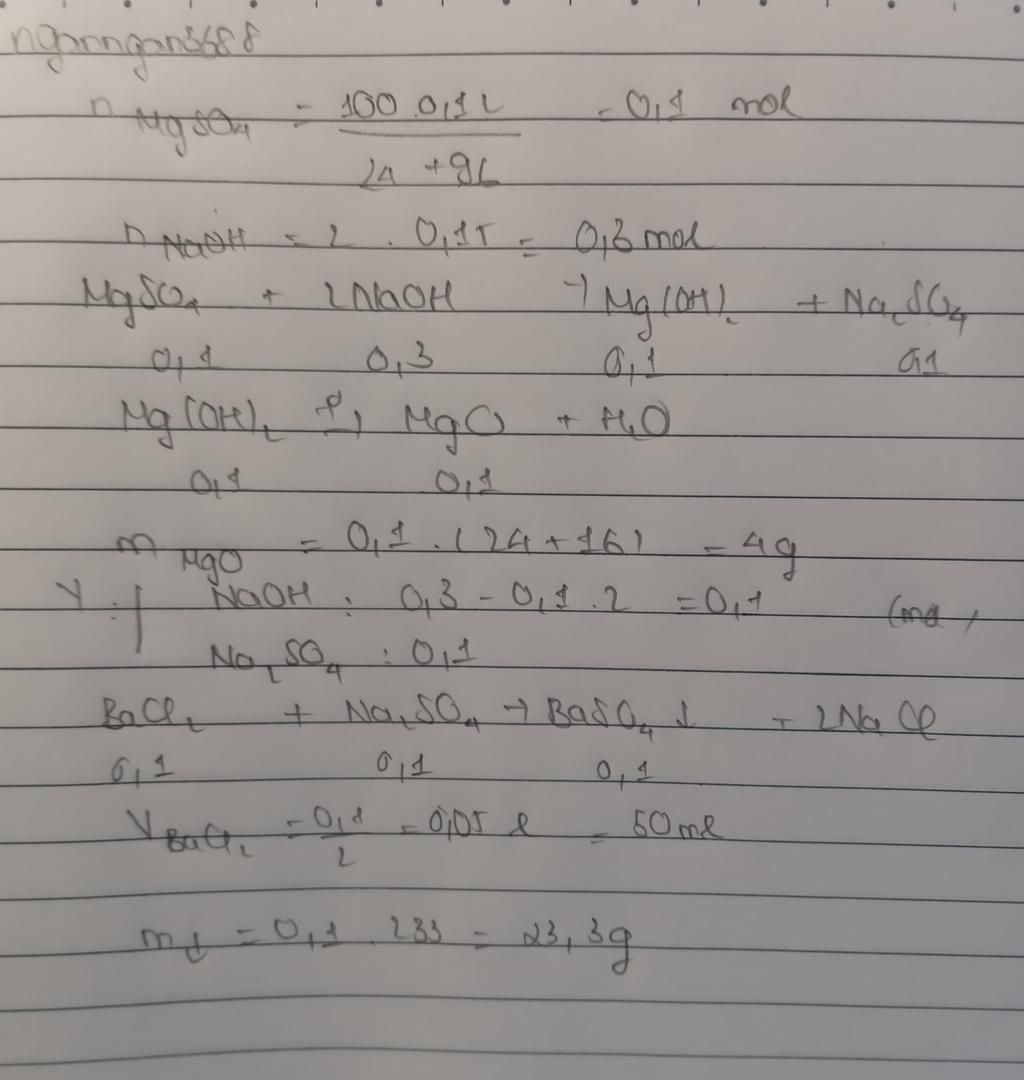 nganngan3688
n MgSO₄ = 100.0,12 / 24 + 96 = 0,1 mol
n NaOH = 2 . 0,15 = 0,3 mol
MgSO₄ + 2NaOH → Mg(OH)₂ + Na₂SO₄
0,1 0,3 0,1 0,1
Mg(OH)₂ t°→ MgO + H₂O
0,1 0,1
m MgO = 0,1 . (24 + 16) = 4g
Y : { NaOH : 0,3 - 0,1 . 2 = 0,1 (mol)
Na₂SO₄ : 0,1
BaCl₂ + Na₂SO₄ → BaSO₄ ↓ + 2NaCl
0,1 0,1 0,1
V BaCl₂ = 0,1 / 2 = 0,05 l = 50 ml
m↓ = 0,1 . 233 = 23,3g